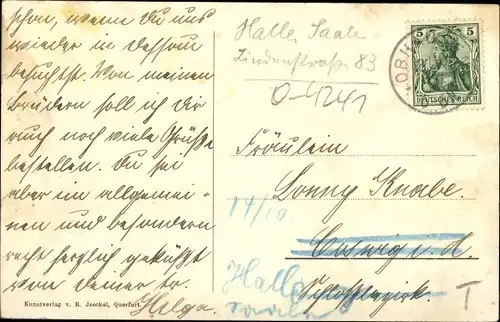 schon, wenn Du uns
wieder in Dessau
besuchst. Von meinen
Brüdern soll ich Dir
auch noch viele Grüße
bestellen. Du sei
aber im allgemei-
nen und besondern
recht herzlich geküßt
von Deiner tr.
Helga.
Kunstverlag v. R. Jaeckel, Querfurt.
Halle Saale
Lindenstraße 83
0-4241
5 5
DEUTSCHES REICH
Fräulein
Lonny Knabe.
14/10
Coswig i. A.
Halle
Saale
Schloßbezirk.
T